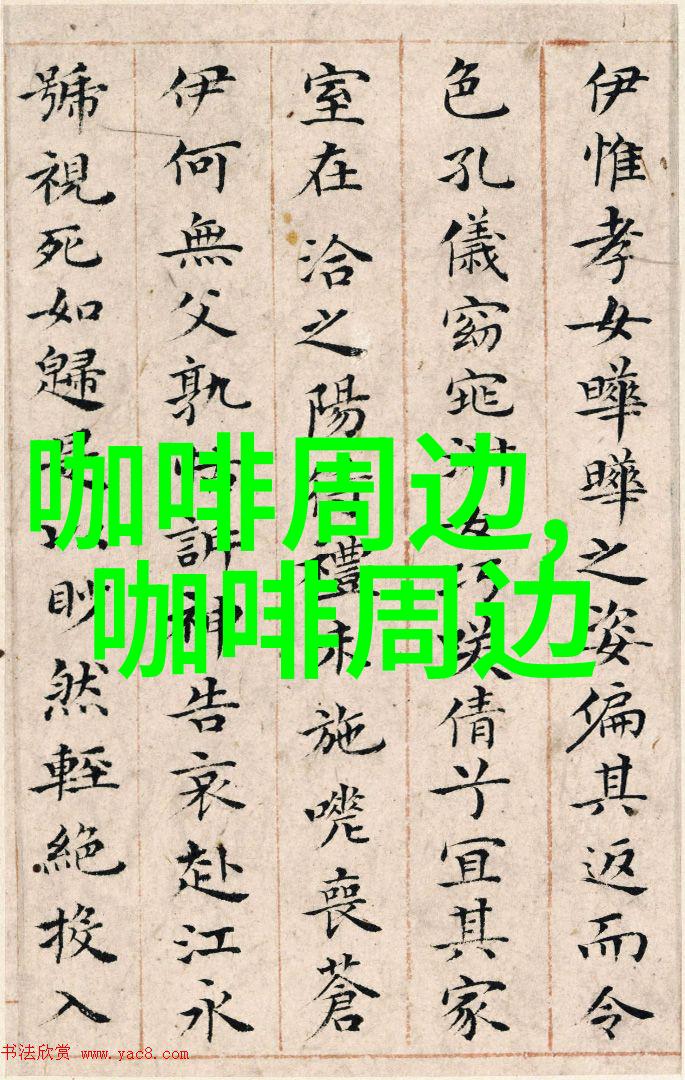 伊惟孝女曄曄之姿偏其返而令
色孔儀窈窕倩兮宜其家
室在洽之陽待禮未施嗟喪蒼
伊何無父孰怙訴神告哀赴江永
號視死如歸是以眇然輕絕投入
咖啡周边,
咖啡周边
书法欣赏 www.yac8.com